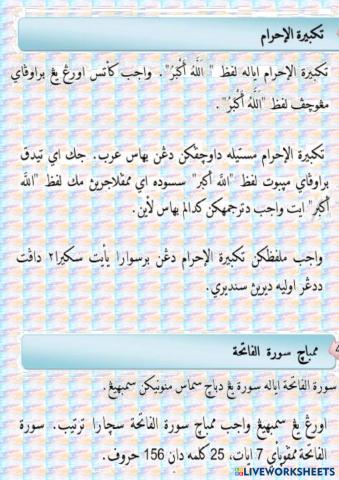 تكبيرة الإحرام
تكبيرة الإحرام اياله لفظ " اَللَّهُ أَكْبَرُ". واجب كأتس اورڠ يڠ براوڤاي
مڠوچڤ لفظ "اَللَّهُ أَكْبَرُ" .
تكبيرة الإحرام مستيله داوچڤكن دڠن بهاس عرب. جك اي تيدق
براوڤاي ميبوت لفظ "الله أكبر" سسوده اي ممڤلاجرين مك لفظ "الله
أكبر" ايت واجب دترجمهكن كدالم بهاس لأين.
واجب ملفظكن تكبيرة الإحرام دڠن برسوارا يأيت سكيرا٢ داڤت
ددڠر اوليه ديرين سنديري.
ممباچ سورة الفاتحة
سورة الفاتحة اياله سورة يڠ دباچ سماس منونيكن سمبهيڠ.
اورڠ يڠ سمبهيڠ واجب ممباچ سورة الفاتحة سچارا ترتيب. سورة
الفاتحة ممڤوڽأي 7 ايات، 25 كلمه دان 156 حروف.
LIVEWORKSHEETS